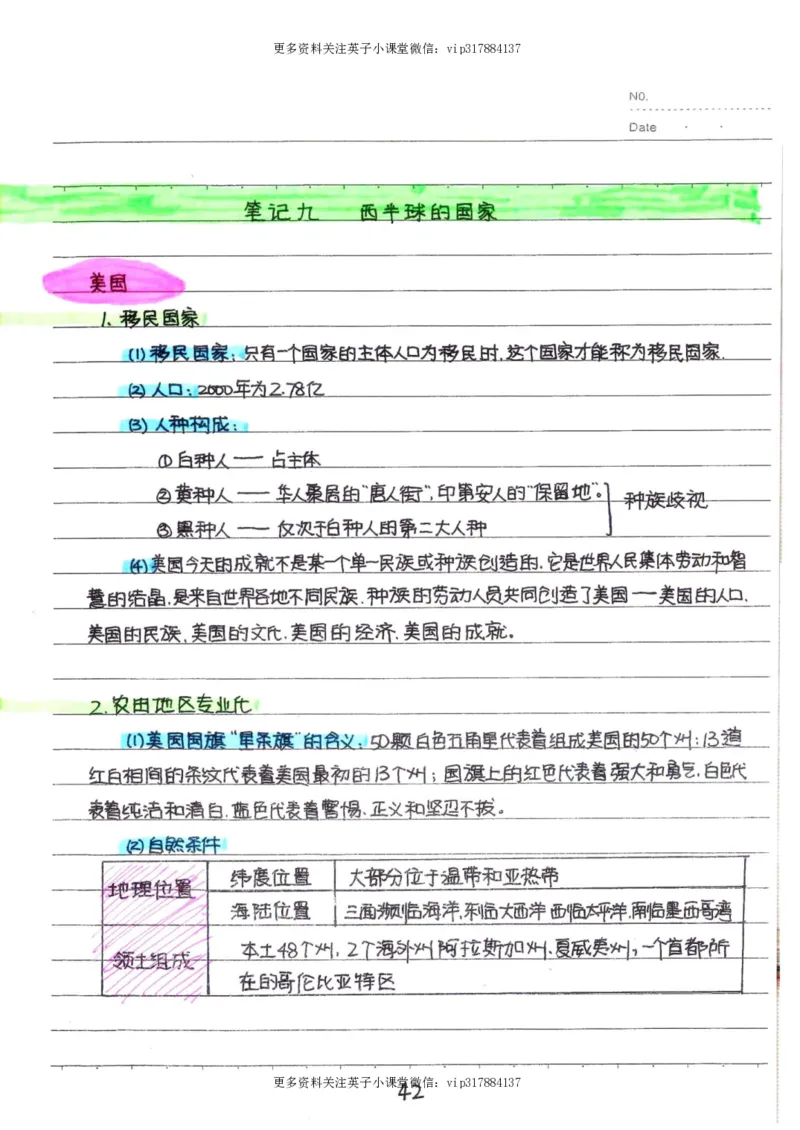 更多资料关注英子小课堂微信：vip317884137
NO.
Date
笔记九 西半球的国家
美国
1. 移民国家
(1) 移民国家：只有一个国家的主体人口为移民时,这个国家才能称为移民国家.
(2) 人口：2000年为2.78亿
(3) 人种构成：
① 白种人 —— 占主体
② 黄种人 —— 华人聚居的“唐人街”,印第安人的“保留地”。
种族歧视
③ 黑种人 —— 仅次于白种人的第二大人种
(4) 美国今天的成就不是某一个单一民族或种族创造的,它是世界人民集体劳动和智
慧的结晶,是来自世界各地不同民族、种族的劳动人员共同创造了美国 —— 美国的人口、
美国的民族、美国的文化、美国的经济、美国的成就。
2. 农田地区专业化
(1) 美国国旗“星条旗”的含义：50颗白色五角星代表着组成美国的50个州；13道
红白相间的条纹代表着美国最初的13个州；国旗上的红色代表着强大和勇气,白色代
表着纯洁和清白,蓝色代表着警惕、正义和坚忍不拔。
(2) 自然条件
地理位置 纬度位置 大部分位于温带和亚热带
海陆位置 三面濒临海洋,东临大西洋 西临太平洋,南临墨西哥湾
领土组成 本土48个州，2个海外州 阿拉斯加州、夏威夷州，一个首都所
在的哥伦比亚特区
更多资料关注英子小课堂微信：vip317884137
42